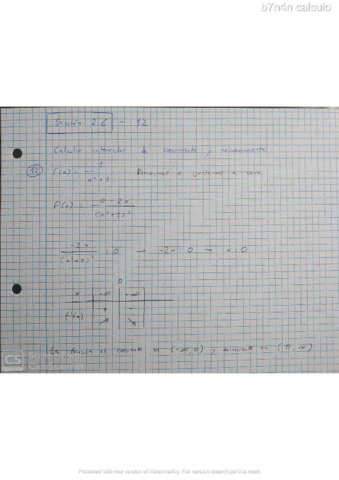 b7n4n calculo
Sección 2.6 - 12
Calcular intervalos de crecimiento y decrecimiento
12 f(x) = 1 / (x²+1) Derivamos e igualamos a cero
f'(x) = (0 - 2x) / (x²+1)²
-2x / (x²+1)² = 0 → -2x = 0 → x = 0
0
x | -∞ | +∞
f'(x) | + | -
↗ | ↘
La función es creciente en (-∞, 0) y decreciente en
CS
Presented with free version of Watermarkly. Full version doesn't put this mark.